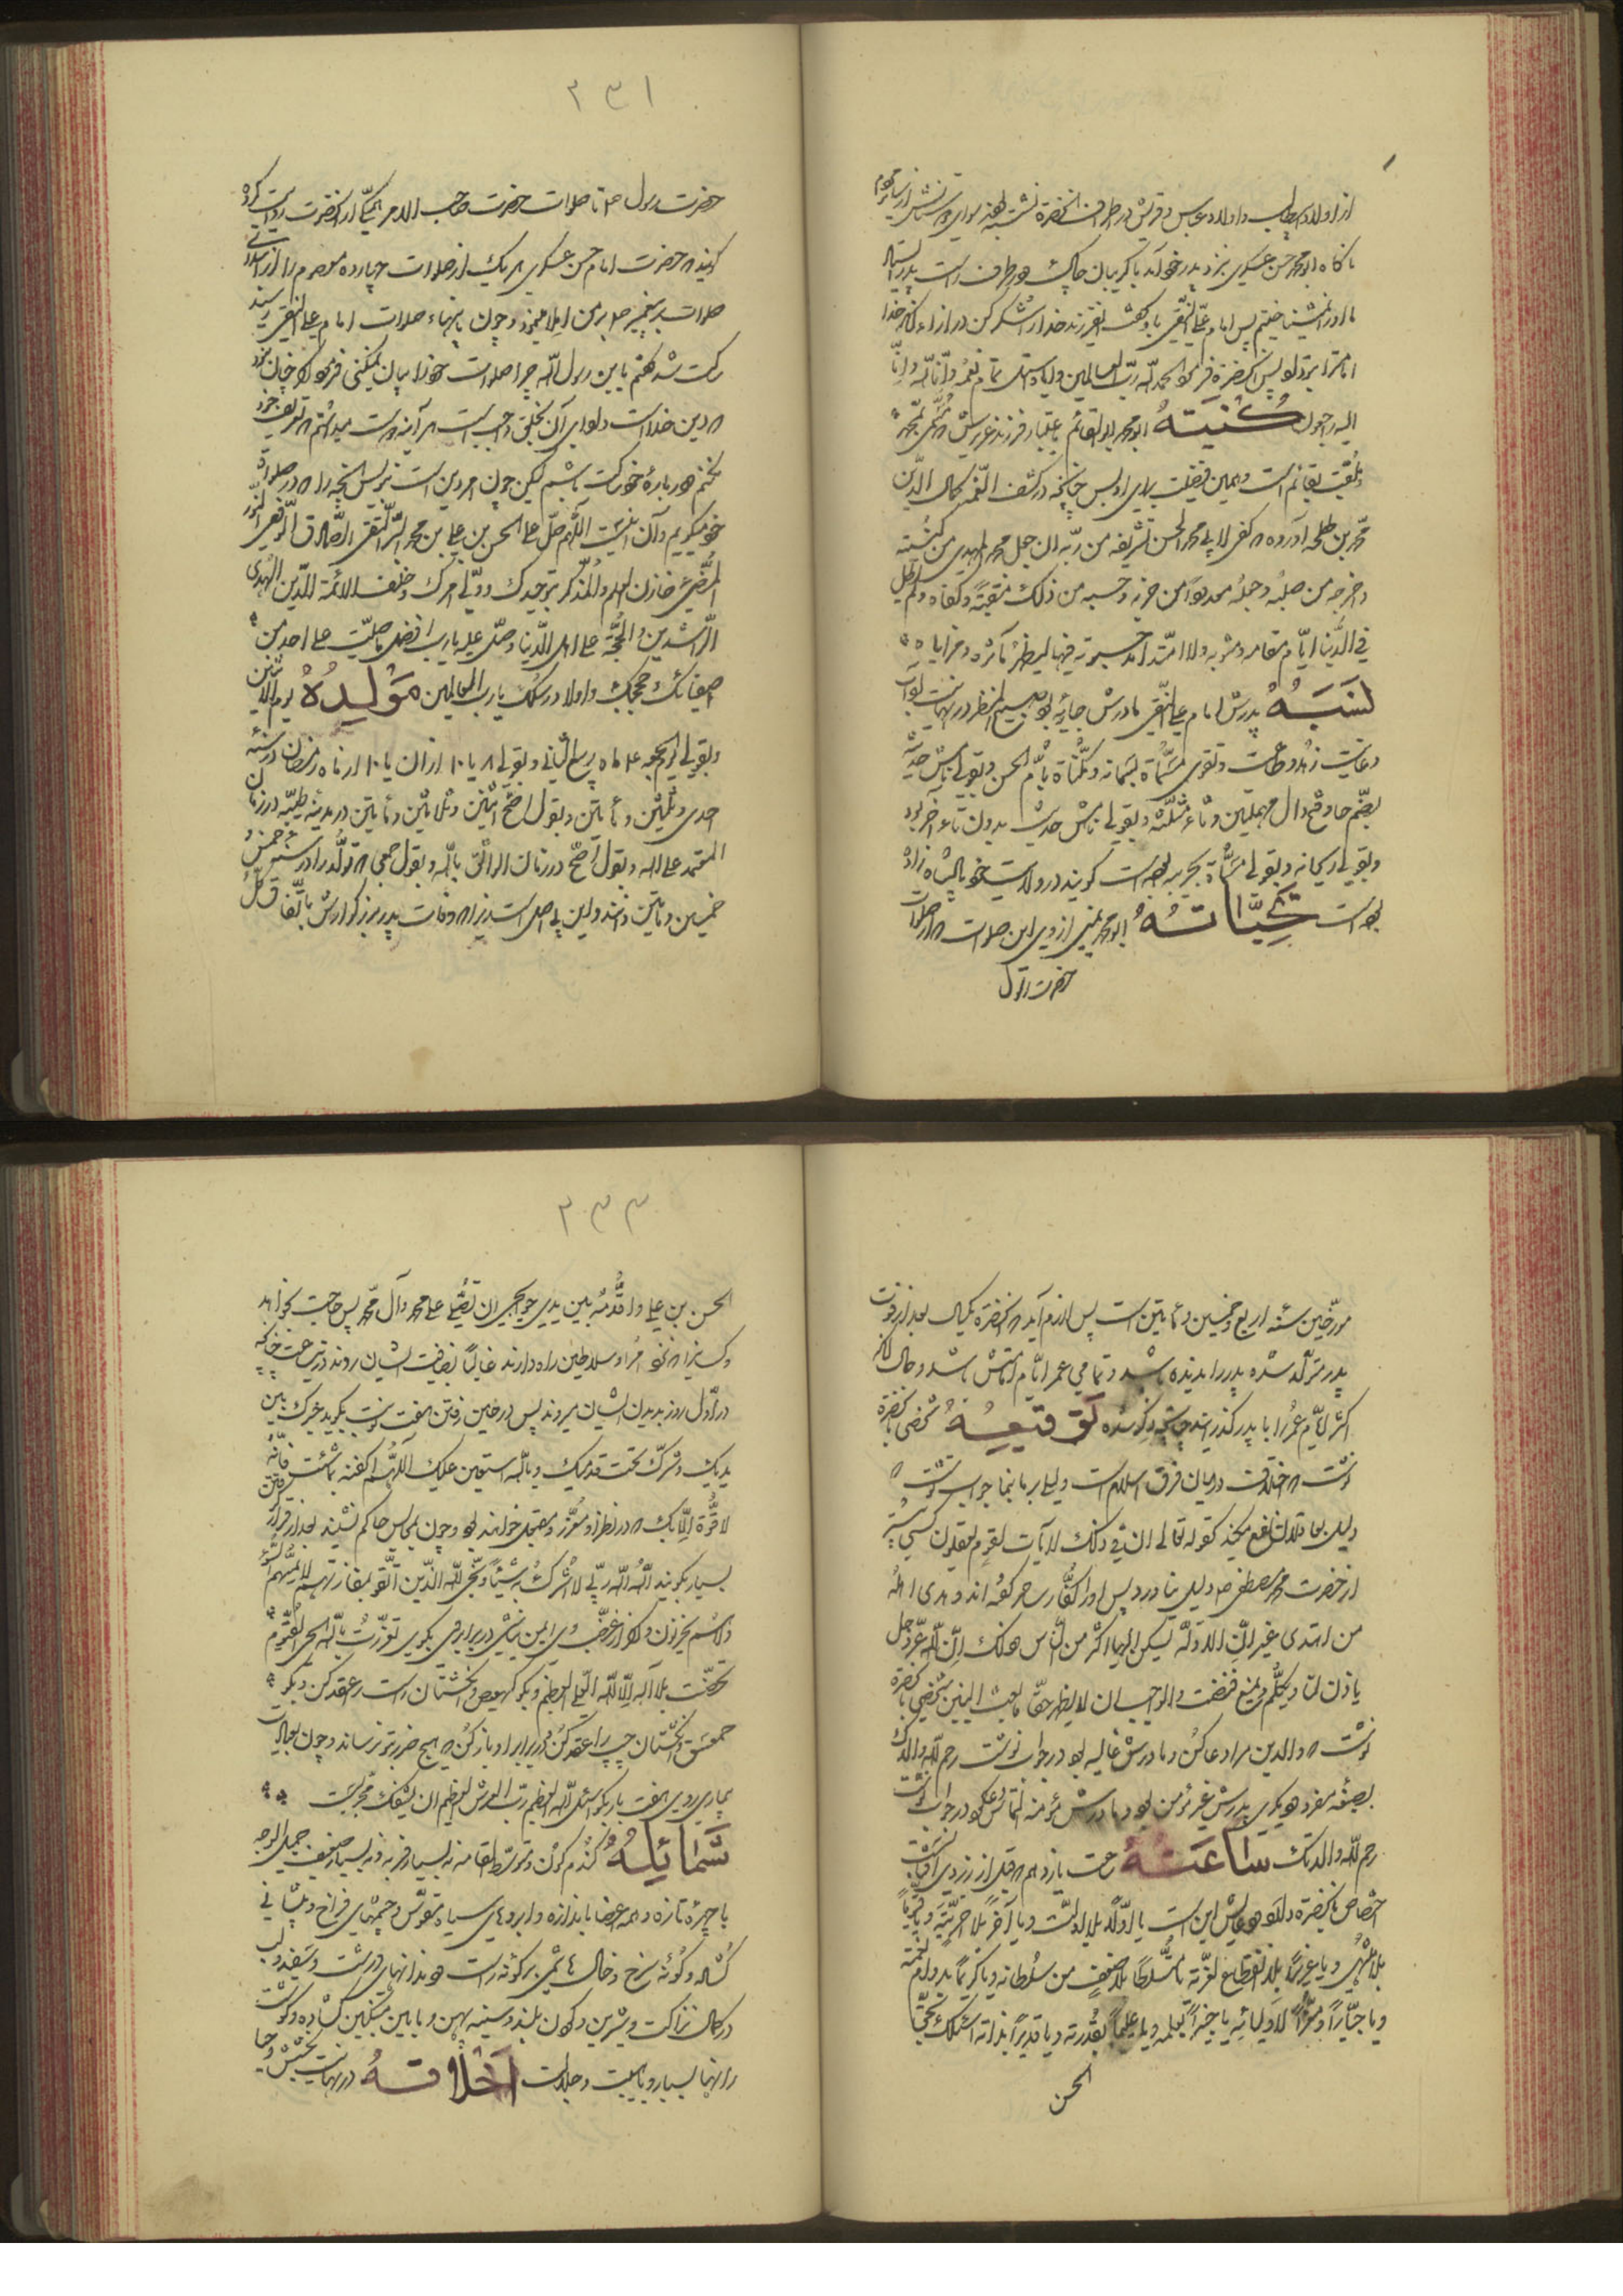 از اولاد ابیطالب و اولاد عباس و قریش در اطراف آنحضرة نشسته بودند سوای دوستانش از سایر مردم
ناگاه ابو محمد حسن عسکری نزد پدر خود آمد با گریبان چاک و در طرف راست پدر ایستاد
ما او را نمیشناختیم پس امام علی النقی باو گفت ای فرزند خدا را شکر کن
پس آنحضرة فرمود الحمد لله رب العالمین و ایاه
الیه راجعون کنیته ابو محمد ابو القائم باعتبار فرزند عزیزش
و همین فضیلت برای او بس چنانچه در کشف الغمه کمال الدین
محمد بن طلحه آورده کفی لابی محمد الحسن تشریفه من ربه ان جعل محمد المهدی من کسبه
و اخرجه من صلبه و جعله معدودا من حزبه و حسبه من ذلک منقبة و کفاه و لم یطل
فی الدنیا ایام مقامه و مثوبه و لا امتد امد حیوته فیها لیظهر مآثره و مزایاه
نسبه پدرش امام علی النقی مادرش جاریه
و غایت زهد و طاعت و تقوی مسماة بسمانه و مکناة بام الحسن و بقولی نامش حدیثه
بضم حا و فتح دال مهملتین و ثاء مثلثه و بقولی نامش حدیث بدون تاء آخر بود
و بقولی ریحانه و بقولی مسماة بحربیه بوده است گویند در ولایت خود پادشاه زاده
بوده است تحیاته ابو محمد یمنی از وی این صلوات
حضرت رسول
۲۳۱
حضرت رسول ص تا صلوات حضرت صاحب الامر
گویند حضرت امام حسن عسکری هر یک از صلوات چهارده معصوم را
صلوات پیغمبر ص بر من املا میفرمود چون بانتهاء صلوات امام علی النقی رسید
ساکت شد گفتم یا بن رسول الله چرا صلوات خود را بیان نمیکنی فرمود
دین خداست
لیکن چون امر دین است بنویس
خود میگویم و آن اینست اللهم صل علی الحسن بن علی بن محمد البر التقی الصادق الوفی النور
المضیء خازن العلم و المذکر بتوحیدک و ولی امرک و خلف الائمة الدین الهدی
الراشدین و الحجة علی اهل الدنیا و صل علیه یا رب افضل ما صلیت علی احد من
اصفیائک و حججک و اولاد رسلک یا رب العالمین مولده یوم الاثنین
و بقولی یوم الجمعه ۴ ماه ربیع الثانی و بقولی ۸ یا ۱۰ از آن یا ۱۰ از ماه رمضان در سنه
احدی و ثلثین و مأتین و بقول اصح اثنین و ثلاثین و مأتین در مدینه طیبه در زمان
المعتمد علی الله و بقول اصح در زمان الواثق بالله و بقول جمعی تولد را در سنه خمس و
خمسین و مأتین دانند و این بی اصل است زیرا وفات پدر بزرگوارش باتفاق کل
مورخین سنه اربع و خمسین و مأتین است پس لازم آید آنحضرة یکسال بعد از فوت
پدر متولد شده پدر را ندیده باشد و تمامی عمر ایام امامتش باشد و حال آنکه
اکثر ایام عمر را با پدر گذرانیده چنانچه ذکر شده توقیعه شخصی بآنحضرة
نوشت اختلافت در میان فرق اسلام است دلیلی بر ما بنما جواب نوشت
دلیل بعاقلان نفع میکند کقوله تعالی ان فی ذلک لآیات لقوم یعقلون کسی بهتر
از حضرت محمد مصطفی ص دلیل نیاورد پس او را کفار ساحر گفته اند و هدی الله
من اهتدی غیر ان الادلة یسکن الیها اکثر من الناس هنالک ان الله عز و جل
یاذن لنا و یتکلم و یمنع فنصمت و لو احب ان لا یظهر حقا ما بعث النبیین شخصی بآنحضرة
نوشت والدین مرا دعا کن و مادرش غالیه بود در جواب نوشت رحم الله والدک
بصیغه مفرد و دیگری پدرش غیر مؤمن بود و مادرش مؤمنه التماس دعا کرد در جواب نوشت
رحم الله والدتک ساعته ساعت یازدهم قبل از زردی آفتاب
اختصاص بآنحضرة دارد و دعایش این است یا اولا بلا اولیت و یا آخرا بلا آخریة و یا قیوما
بلا منتهی و یا عزیزا بلا انقطاع لعزته یا متسلطا بلا ضعف من سلطانه و یا کریما بدوام نعمته
و یا جبارا و معزا لاولیائه یا خبیرا بعلمه و یا علیما بقدرته و یا قدیرا بذاته اسئلک بحق
الحسن
۲۳۳
الحسن بن علی و اقدمه بین یدی حوائجی ان تصلی علی محمد و آل محمد پس حاجت بخواهد
و کسانیرا نزد امراء و سلاطین راه دارند غالبا بضیافت ایشان روند
در اول روز بدیدن ایشان میروند پس در حین رفتن هفت نوبت بگوید خیرک بین
یدیک و شرک تحت قدمیک و بالله استعین علیک اللهم اکفنیه بما شئت فانه
لا قوة الا بک در نظر او معزز و مبجل خواهند بود و چون بمجلس حاکم نشیند بعد از قرار گرفتن
بسیار بگویند الله الله ربی لا اشرک به شیئا و ینجی الله الذین اتقوا بمفازتهم لا یمسهم السوء
و لا هم یحزنون و اگر از غضب وی ایمن نباشی در برابر وی بگوی تعززت بالله الحی القیوم
تحصنت بلا اله الا الله العلی العظیم و بگو کهیعص و انگشتان راست را عقد کن و بگو
حمعسق و انگشتان چپ را عقد کن و در برابر او باز کن هیچ ضرر بتو نرساند و چون بعیادت
بیماری روی هفت بار بگو اسئل الله العظیم رب العرش العظیم ان یشفیک مجربست
شمائله گندم گون و متوسط القامه نه بسیار فربه و نه بسیار ضعیف جمیل الوجه
با چهره تازه و همه اعضا باندازه و ابروهای سیاه مقوس و چشمهای فراخ و پیشانی
گشاده و گونه سرخ و خال هاشمی بر گونه راست و دندانهای درشت و سفید و لب
در کمال نزاکت و شیرین و گردن بلند و سینه پهن و مابین منکبین گشاده و گوشت
رانها بسیار و با هیبت و جلالت اخلاقه در نهایت بخشش و حیا